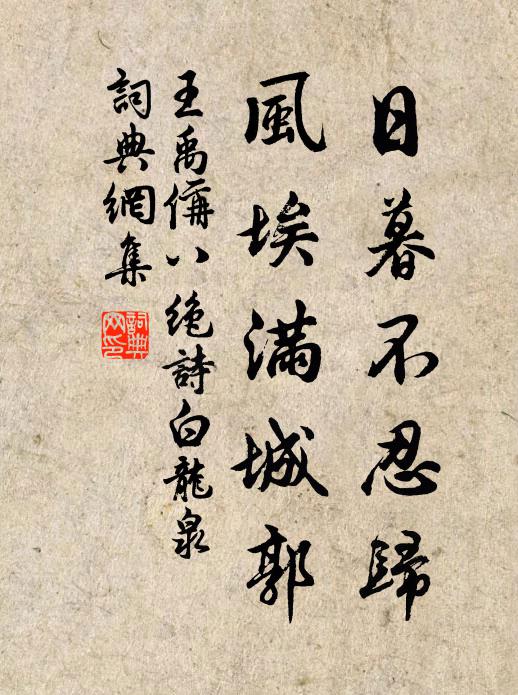 日暮不忍歸
風埃滿城郭
王禹偁八絶詩白龍泉
詞典網集
詞典網印